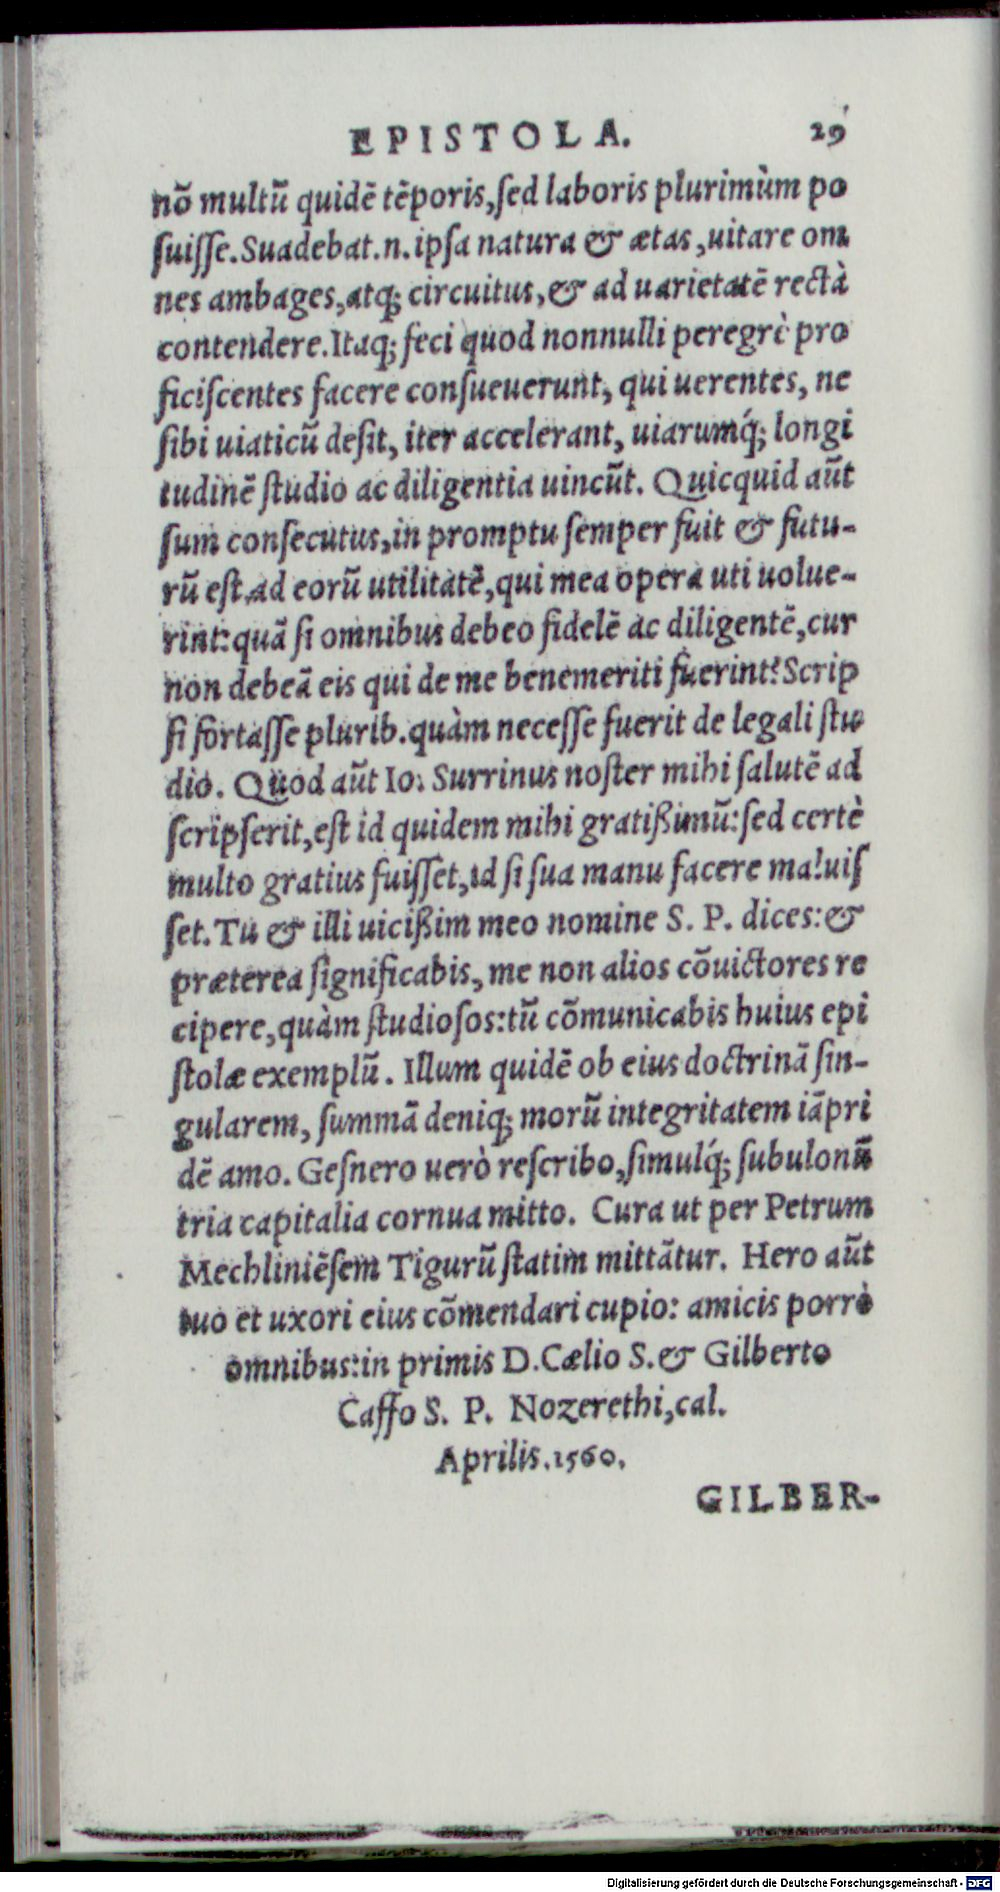 EPISTOLA. 29
nõ multũ quidẽ tẽporis, ſed laboris plurimùm po
ſuiſſe. Suadebat .n. ipſa natura & ætas, uitare om
nes ambages, atq; circuitus, & ad uarietatẽ rectà
contendere. Itaq; feci quod nonnulli peregrè pro
ficiſcentes facere conſueuerunt, qui uerentes, ne
ſibi uiaticũ deſit, iter accelerant, uiarumq́; longi
tudinẽ ſtudio ac diligentia uincũt. Quicquid aũt
ſum conſecutus, in promptu ſemper fuit & futu-
rũ eſt, ad eorũ utilitatẽ, qui mea opera uti uolue-
rint: quã ſi omnibus debeo fidelẽ ac diligentẽ, cur
non debeã eis qui de me benemeriti fuerint? Scrip
ſi fortaſſe plurib. quàm neceſſe fuerit de legali ſtu
dio. Quod aũt Io: Surrinus noſter mihi ſalutẽ ad
ſcripſerit, eſt id quidem mihi gratißimũ: ſed certè
multo gratius fuiſſet, id ſi ſua manu facere maluiſ
ſet. Tu & illi uicißim meo nomine S. P. dices: &
præterea ſignificabis, me non alios cõuictores re
cipere, quàm ſtudioſos: tũ cõmunicabis huius epi
ſtolæ exemplũ. Illum quidẽ ob eius doctrinã ſin-
gularem, ſummã deniq; morũ integritatem iãpri
dẽ amo. Geſnero uerò reſcribo, ſimulq́; ſubulonũ
tria capitalia cornua mitto. Cura ut per Petrum
Mechliniẽſem Tigurũ ſtatim mittãtur. Hero aũt
tuo et uxori eius cõmendari cupio: amicis porrò
omnibus: in primis D. Cælio S. & Gilberto
Caſſo S. P. Nozerethi, cal.
Aprilis. 1560.
GILBER-
Digitalisierung gefördert durch die Deutsche Forschungsgemeinschaft - DFG